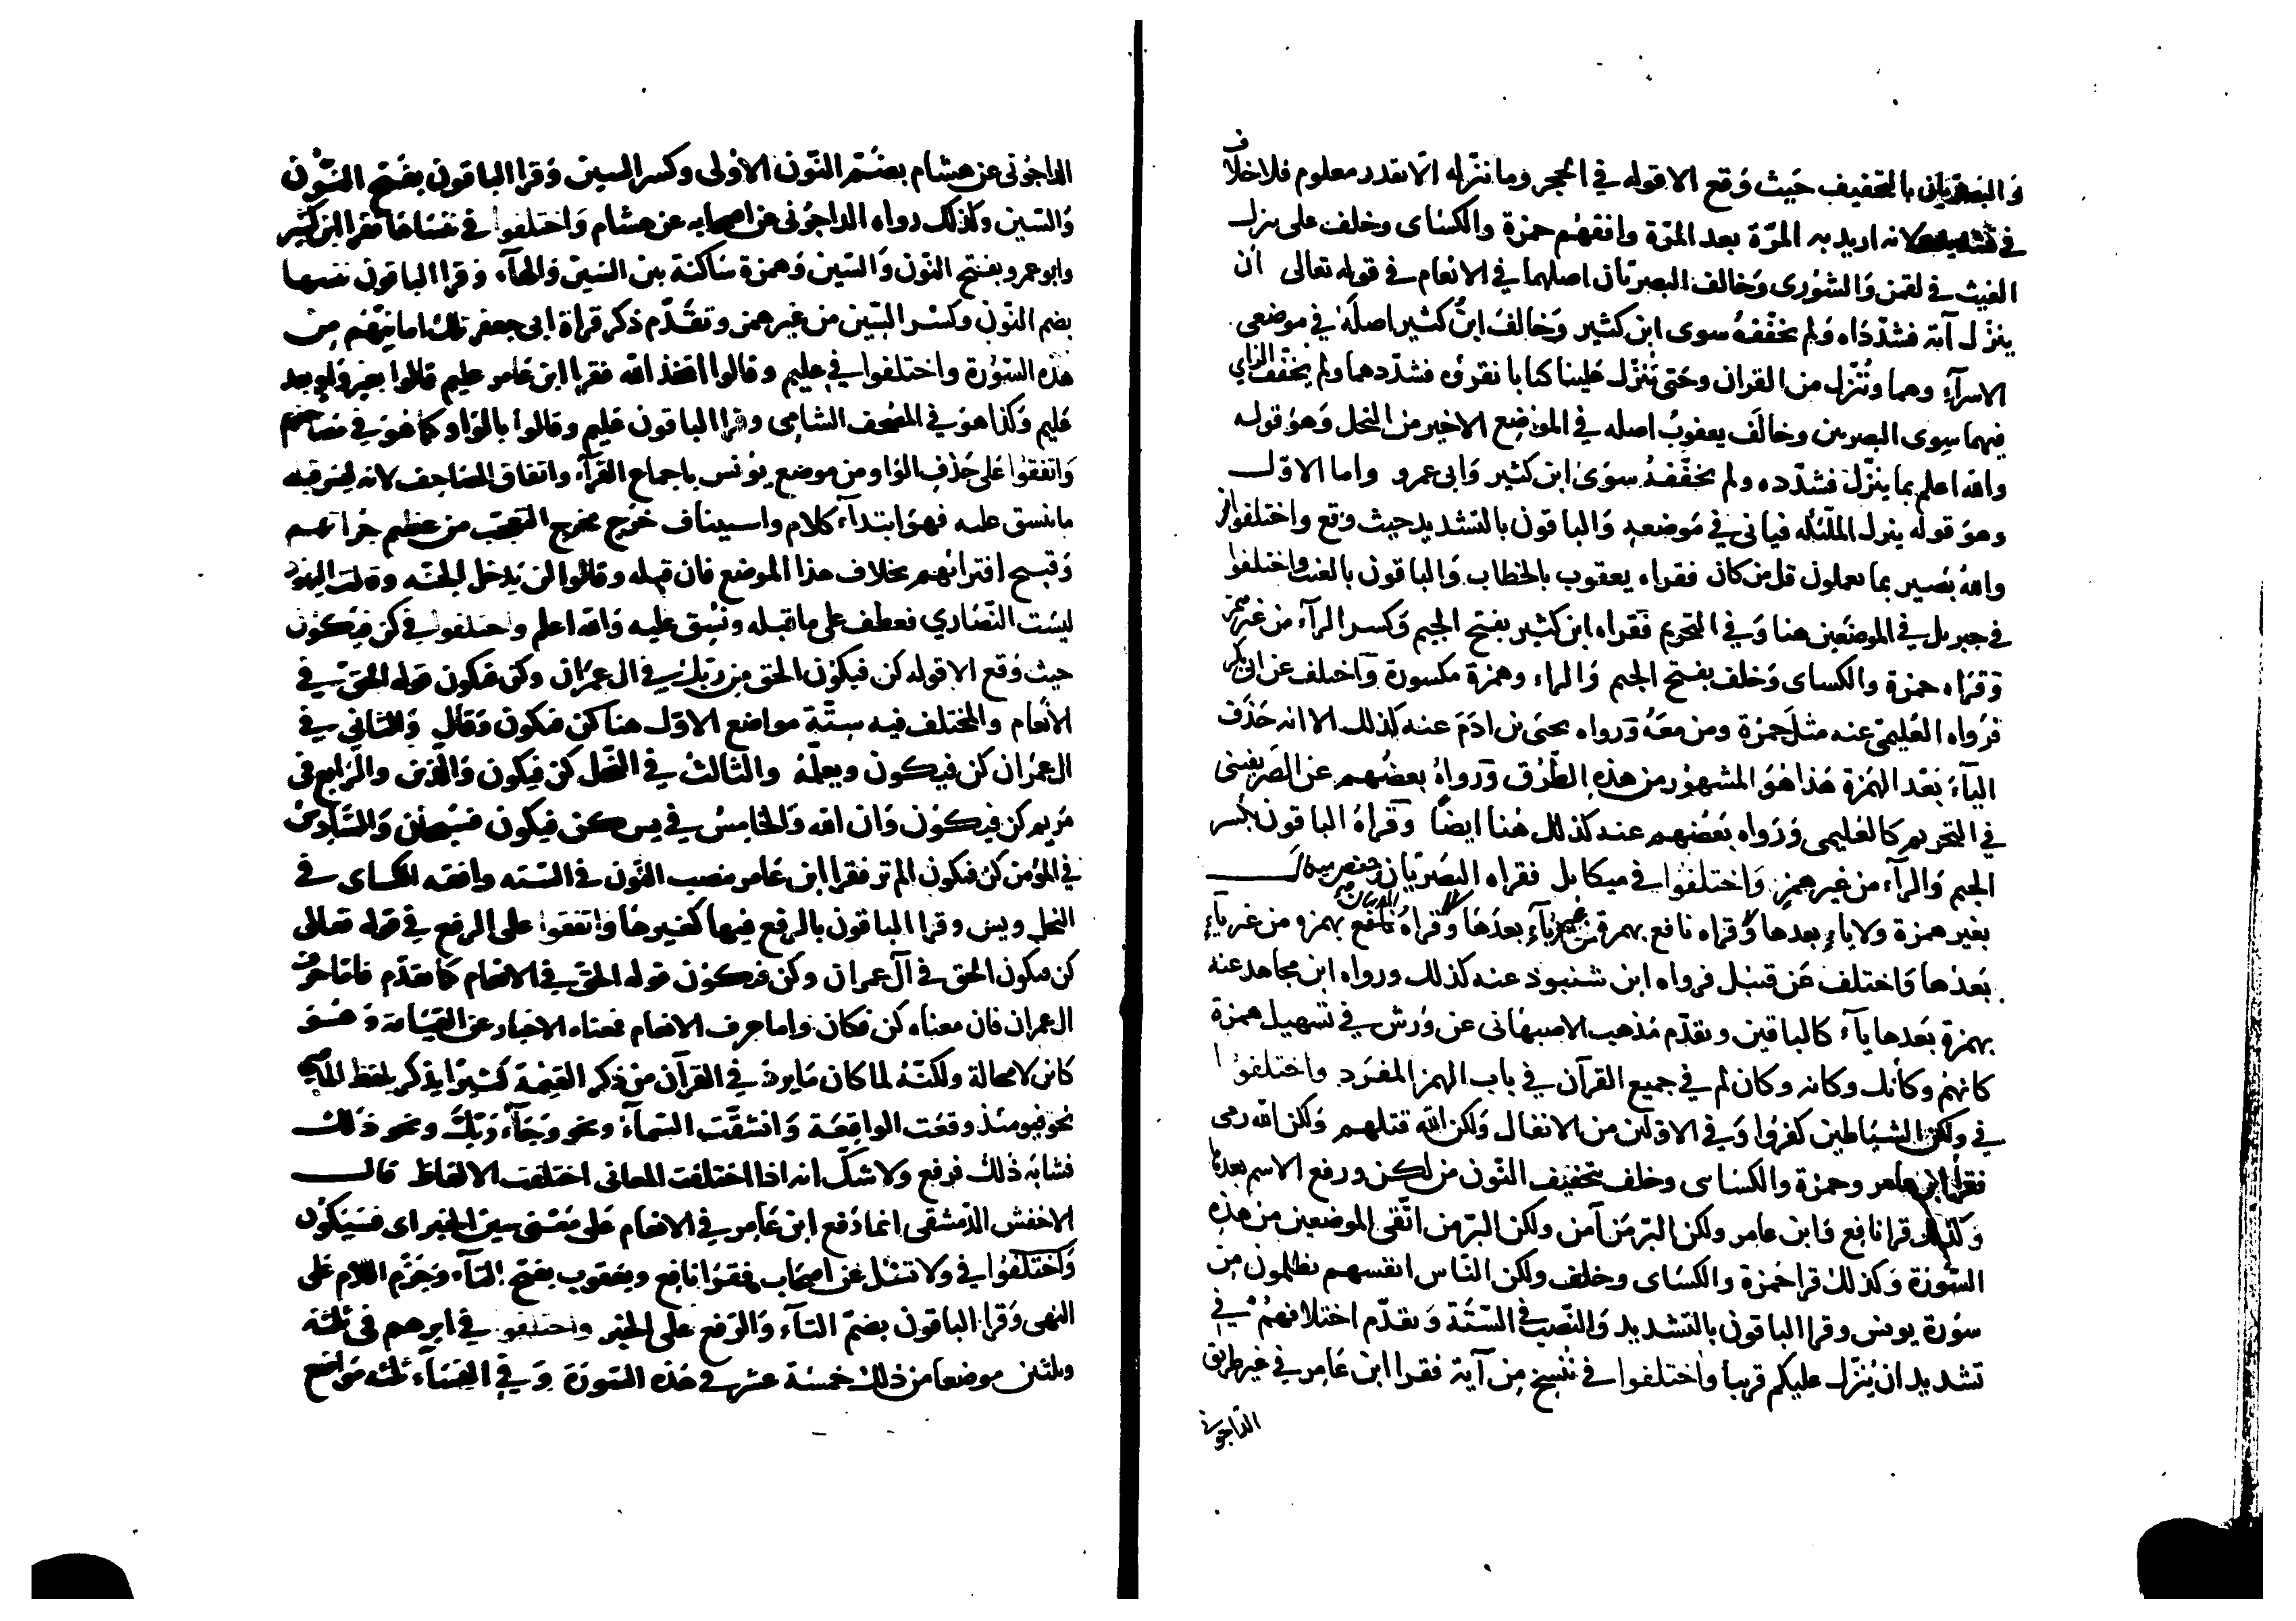 والبصريان بالتخفيف حيث وقع الا قوله في الحجر وما ننزله الا بقدر معلوم فلا خلاف
في تشديده لانه اريد به المرّة بعد المرّة وافقهم حمزة والكساى وخلف على ينزل
الغيث في لقمن والشورى وخالف البصريان اصلهما في الانعام في قوله تعالى ان
ينزل آية فشدّداه ولم يخففه سوى ابن كثير وخالف ابن كثير اصله في موضعي
الاسرآء وهما وننزل من القران وحتى تنزل علينا كتابا نقرؤه فشدّدهما ولم يخفف الزاي
فيهما سوى البصريين وخالف يعقوب اصله في الموضع الاخير من النحل وهو قوله
والله اعلم بما ينزل فشدّده ولم يخففه سوى ابن كثير وابى عمرو واما الاوّل
وهو قوله ينزل الملئكه فياتى في موضعه والباقون بالتشديد حيث وقع واختلفوا في
والله بصير بما تعملون قل من كان فقراه يعقوب بالخطاب والباقون بالغيب واختلفوا
في جبريل في الموضعين هنا وفي التحريم فقراه ابن كثير بفتح الجيم وكسر الرآء من غير همز
وقراه حمزة والكساى وخلف بفتح الجيم والراء وهمزة مكسورة واختلف عن ابى بكر
فرواه العليمى عنه مثل حمزة ومن معه ورواه يحيى بن ادم عنه كذلك الا انه حذف
اليآء بعد الهمزة هذا هو المشهور من هذه الطرق ورواه بعضهم عن الصريفينى
في التحريم كالعليمى ورواه بعضهم عنه كذلك هنا ايضا وقراه الباقون بكسر
الجيم والرآء من غير همز واختلفوا في ميكايل فقراه البصريان وحفص ميكال
بغير همزة ولا ياء بعدها وقراه نافع بهمزة من غير يآء بعدها وقراه نافع بهمزه من غير يآء
بعدها واختلف عن قنبل فرواه ابن شنبوذ عنه كذلك ورواه ابن مجاهد عنه
بهمزة بعدها يآء كالباقين وتقدّم مذهب الاصبهانى عن ورش في تسهيل همزة
كانهم وكأنك وكانه وكان لم في جميع القرآن في باب الهمز المفرد واختلفوا
في ولكن الشياطين كفروا وفي الاولين من الانفال ولكن الله قتلهم ولكن الله رمى
فقرا ابن عامر وحمزة والكساى وخلف بتخفيف النون من لكن ورفع الاسم بعدها
وكذلك قرا نافع وابن عامر ولكن البرّ من آمن ولكن البرّ من اتّقى الموضعين من هذه
السورة وكذلك قرا حمزة والكساى وخلف ولكن الناس انفسهم يظلمون من
سورة يونس وقرا الباقون بالتشديد والنصب في الستّة وتقدّم اختلافهم في
تشديد ان ينزل عليكم قريبا واختلفوا في ننسخ من آية فقرا ابن عامر في غير طريق
الداجونى
الداجونى عن هشام بضم النون الاولى وكسر السين وقرا الباقون بفتح النون
والسين وكذلك رواه الداجونى عن اصحابه عن هشام واختلفوا في ننساها فقرا ابن كثير
وابو عمرو بفتح النون والسين وهمزة ساكنة بين السين والهآء وقرا الباقون ننسها
بضم النون وكسر السين من غير همز وتقدّم ذكر قراة ابى جعفر تلك امانيهم من
هذه السورة واختلفوا في عليم وقالوا اتخذ الله فقرا ابن عامر عليم قالوا بغير واو بعد
عليم وكذا هو في المصحف الشامى وقرا الباقون عليم وقالوا بالواو كما هو في مصاحفهم
واتفقوا على حذف الواو من موضع يونس باجماع القرآء واتفاق المصاحف لانه ليس قبله
ما ينسق عليه فهو ابتدآء كلام واسيناف خرج مخرج التعجب من عظم جراتهم
وقبيح افترائهم بخلاف هذا الموضع فان قبله وقالوا لن يدخل الجنه وقالت اليهود
ليست النصارى فعطف على ما قبله ونسق عليه والله اعلم واختلفوا في كن فيكون
حيث وقع الا قوله كن فيكون الحق من ربك في ال عمران وكن فيكون قوله الحق في
الانعام والمختلف فيه ستّة مواضع الاوّل هنا كن فيكون وقال والثانى في
ال عمران كن فيكون ويعلمه والثالث في النحل كن فيكون والذين والرابع فى
مريم كن فيكون وان الله والخامس في يس كن فيكون فسبحان والسادس
في المؤمن كن فيكون الم تر فقرا ابن عامر بنصب النون في الستة وافقه الكساى في
النحل ويس وقرا الباقون بالرفع فيها كغيرها واتفقوا على الرفع في قوله تعالى
كن فيكون الحق في آل عمران وكن فيكون قوله الحق في الانعام كما تقدّم فاما حرف
ال عمران فان معناه كن فكان واما حرف الانعام فمعناه الاخبار عن القيامة وهو
كائن لا محالة ولكنّه لما كان ما يرد في القرآن من ذكر القيمة كثيرا يذكر بلفظ الماضى
نحو فيومئذ وقعت الواقعة وانشقت السماء ونحو وجآء ربك ونحو ذلك
فشابه ذلك فرفع ولا شكّ انه اذا اختلفت المعانى اختلفت الالفاظ قال
الاخفش الدمشقى انما رفع ابن عامر في الانعام على معنى سين الخبر اى فسيكون
واختلفوا في ولا تسئل عن اصحاب فقرا نافع ويعقوب بفتح التآء وجزم اللام على
النهى وقرا الباقون بضمّ التآء والرفع على الخبر واختلفوا في ابرهم فى ثلثة
وثلثين موضعا من ذلك خمسة عشر في هذه السورة وفي النسآء ثلثه مواضع